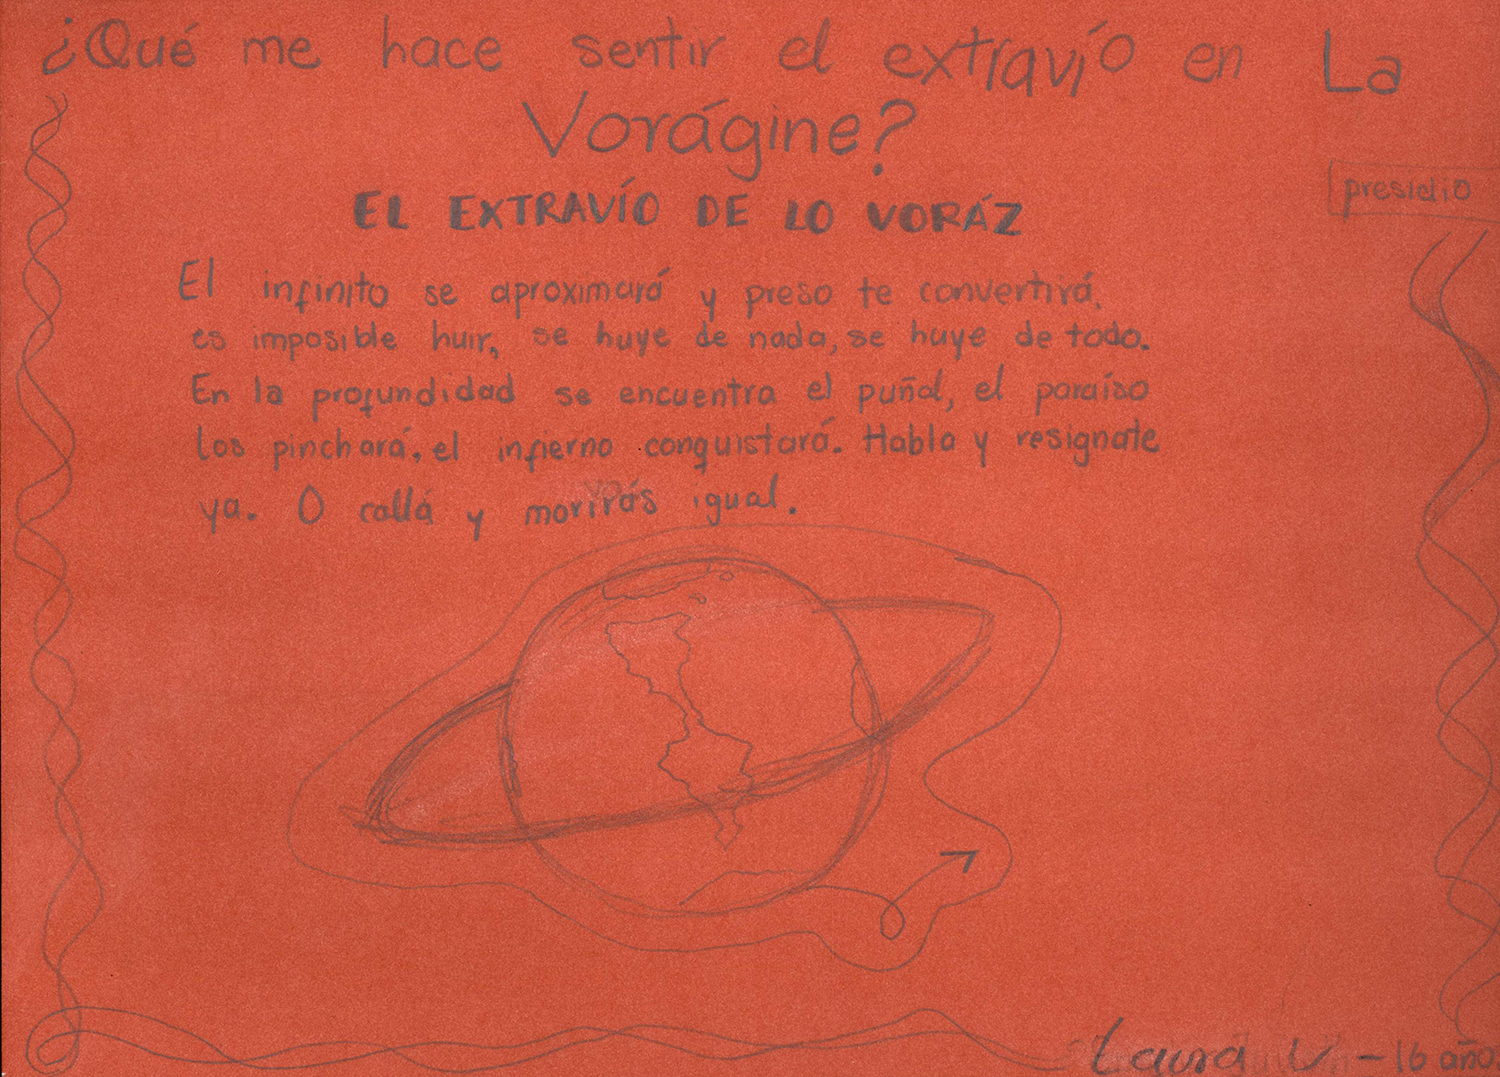 ¿Qué me hace sentir el extravío en La
Vorágine?
EL EXTRAVÍO DE LO VORÁZ
presidio
El infinito se aproximará y preso te convertirá,
es imposible huir, se huye de nada, se huye de todo.
En la profundidad se encuentra el puñal, el paraíso
los pinchará, el infierno conquistará. Habla y resignate
ya. O callá y morirás igual.
Laura V - 16 años